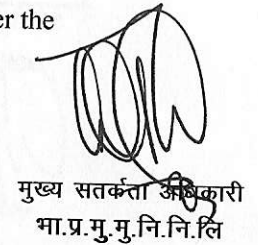 er the
मुख्य सतर्कता अधिकारी
भा.प्र.मु.मु.नि.नि.लि